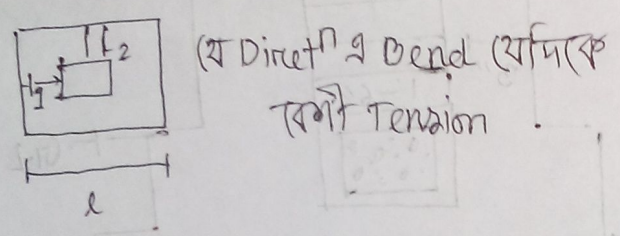 2
যে Directⁿ এ Bend যেদিকে
1
বেশী Tension .
l